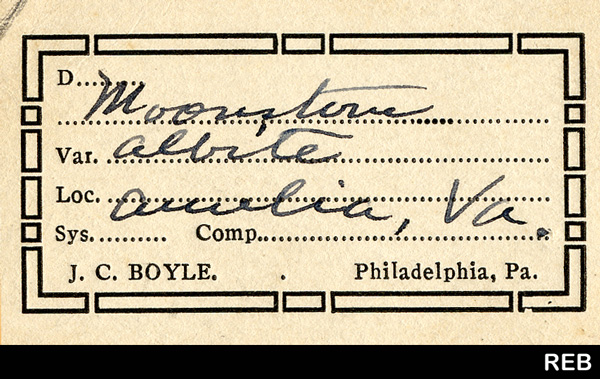 D..........
Moonstone
Var. albite
Loc. amelia, Va.
Sys.......... Comp.
J. C. BOYLE. . Philadelphia, Pa.
REB